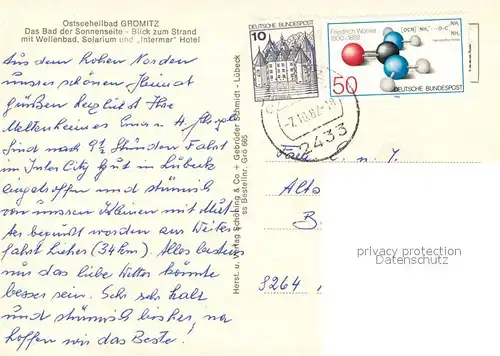 Ostseeheilbad GRÖMITZ
Das Bad der Sonnenseite - Blick zum Strand
mit Wellenbad, Solarium und „Intermar" Hotel
Aus dem hohen Norden
unserer schönen Heimat
grüßen herzlichst Ihre
Sind nach 9½ Stunden Fahrt
im Inter City gut in Lübeck
eingetroffen und stürmisch
von unseren Kleinen mit Mut
ter begrüßt worden zur Weiter
fahrt hieher (34 km). Alles bestens
nur das liebe Wetter könnte
besser sein. Sehr sehr kalt
und stürmisch bisher, na
hoffen wir das Beste!
Herst. u. Verlag Schöning & Co + Gebrüder Schmidt - Lübeck
ss Bestellnr. Grö 665
DEUTSCHE BUNDESPOST
10
Friedrich Wöhler
1800-1882
50
DEUTSCHE BUNDESPOST
-7.10.82-18
2433
Fam.
Alto
B
8264
privacy protection
Datenschutz